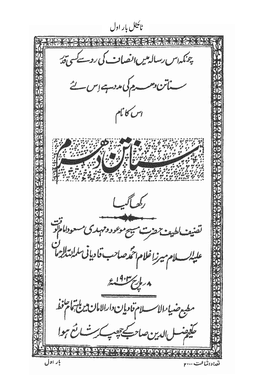 ٹائیٹل بار اول
چونکہ اس رسالہ میں انصاف کی رو سے کسی قدر
سناتن دھرم کی مدد ہے اس لئے
اس کا نام
سناتن دھرم
رکھا گیا
تصنیف لطیف حضرت مسیح موعود و مہدی مسعود امام وقت
علیہ السلام میرزا غلام احمد صاحب قادیانی سلمہ اللہ الرحمان
۸ مارچ ۱۹۰۳ء
مطبع ضیاء الاسلام قادیان دارالامان میں باہتمام حافظ
حکیم فضل الدین صاحب کے چھپ کر شائع ہوا
بار اول
تعداد اشاعت